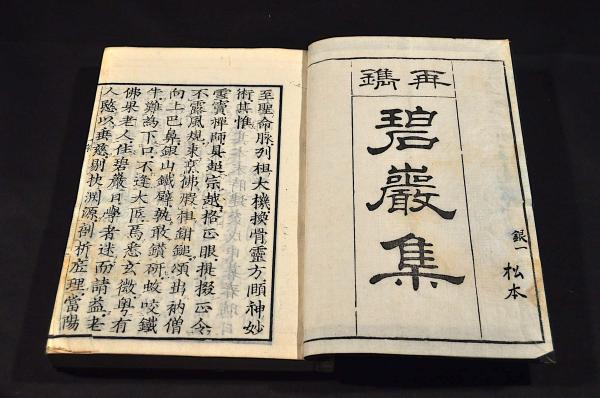 再鐫
碧巖集
銀一
松本
至聖命脉列祖大機換骨靈方頤神妙
術其惟
雪竇禪師具超宗越格正眼提掇正令
不露風規秉烹佛煆祖鉗鎚頌出衲僧
向上巴鼻銀山鐵壁孰敢鑽研蚊咬鐵
牛難爲下口不逢大匠焉悉玄微粤有
佛果老人住碧巖日學者迷而請益老
人愍以垂慈剔抉淵源剖析底理當陽